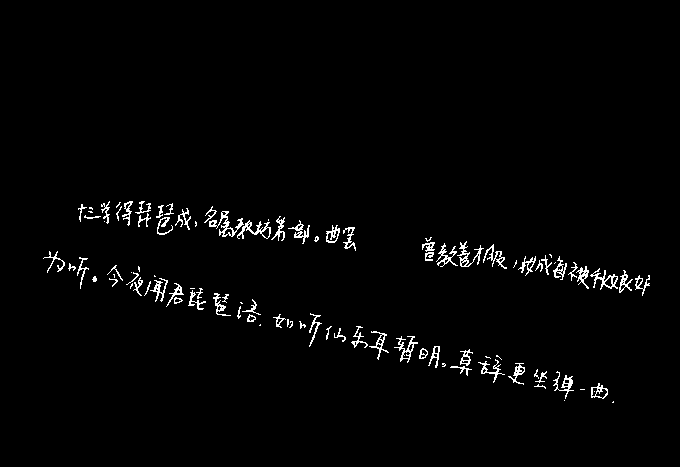 十三学得琵琶成,名属教坊第一部。曲罢 曾教善才服,妆成每被秋娘妒
为听。今夜闻君琵琶语,如听仙乐耳暂明。莫辞更坐弹一曲,